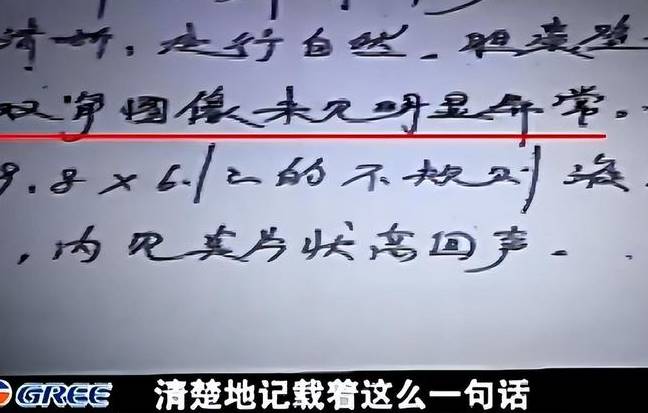 清晰,走行自然.胆囊壁
双肾图像未见明显异常。
9.8×6.1 的不规则液
,内见 片状高回声.
GREE 清楚地记载着这么一句话